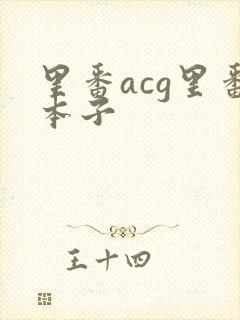 里番acg里番
本子
王十四